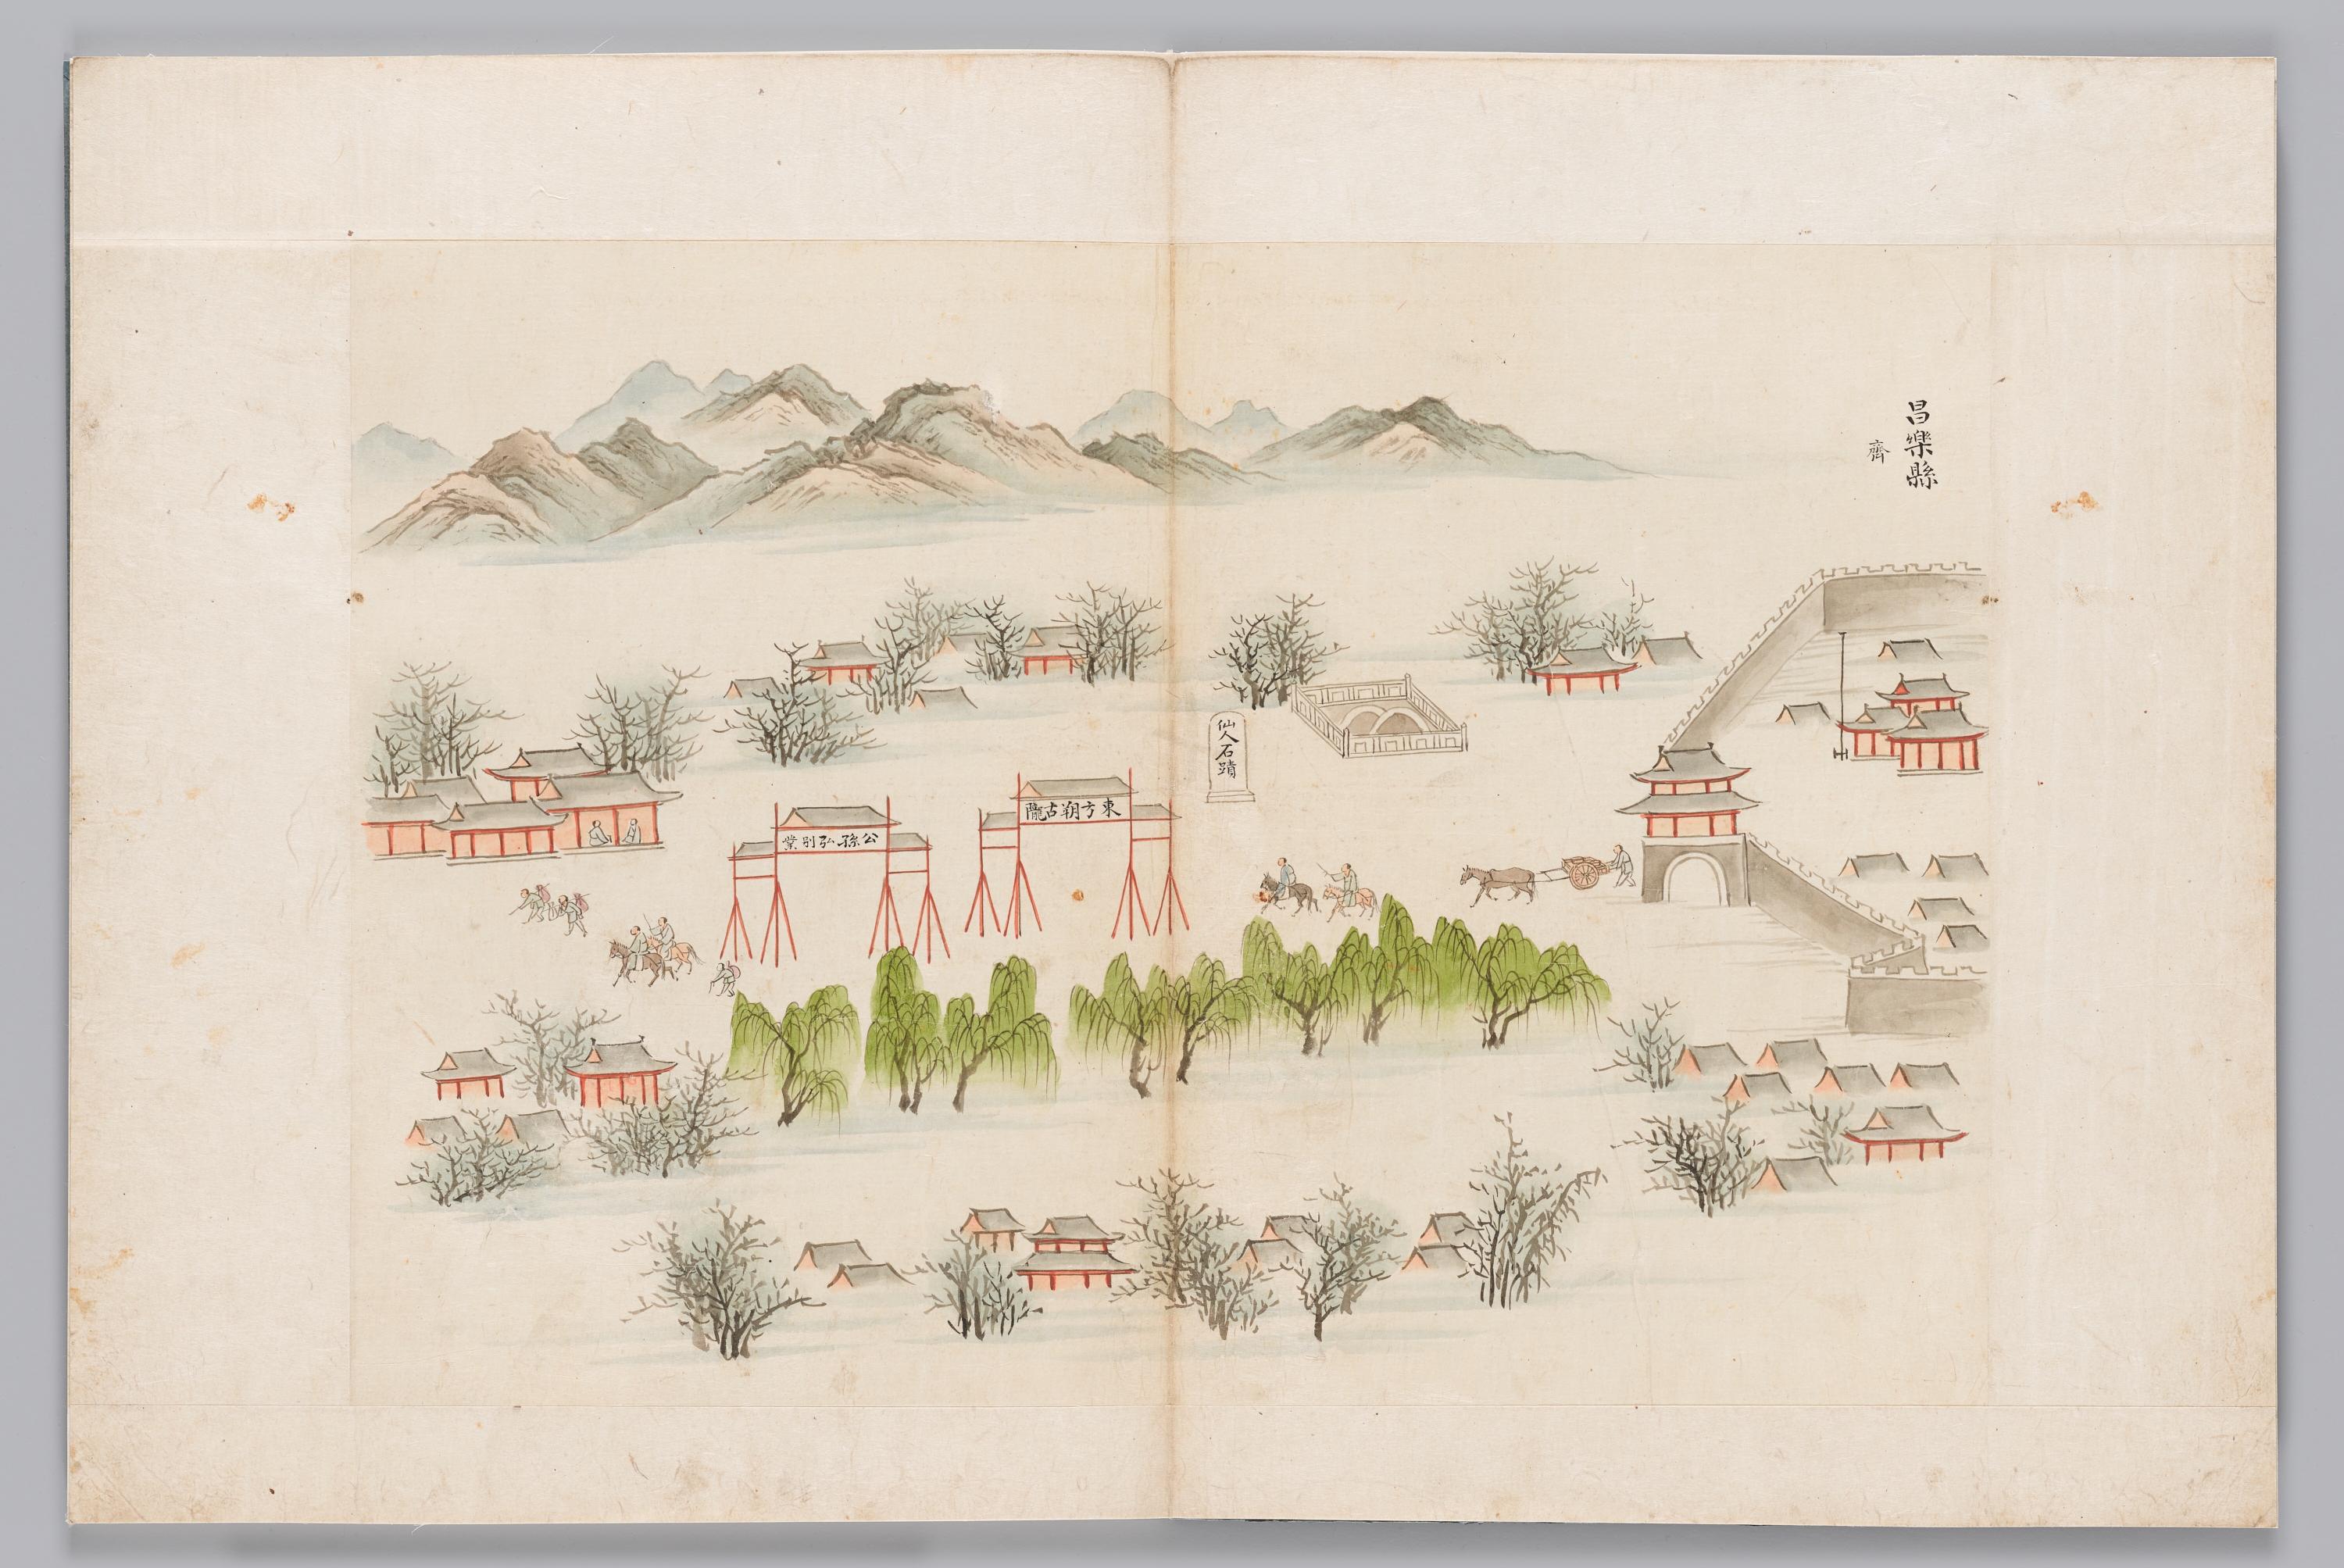 昌樂縣
齊
仙人石蹟
東方朔古隴
公孫弘別業